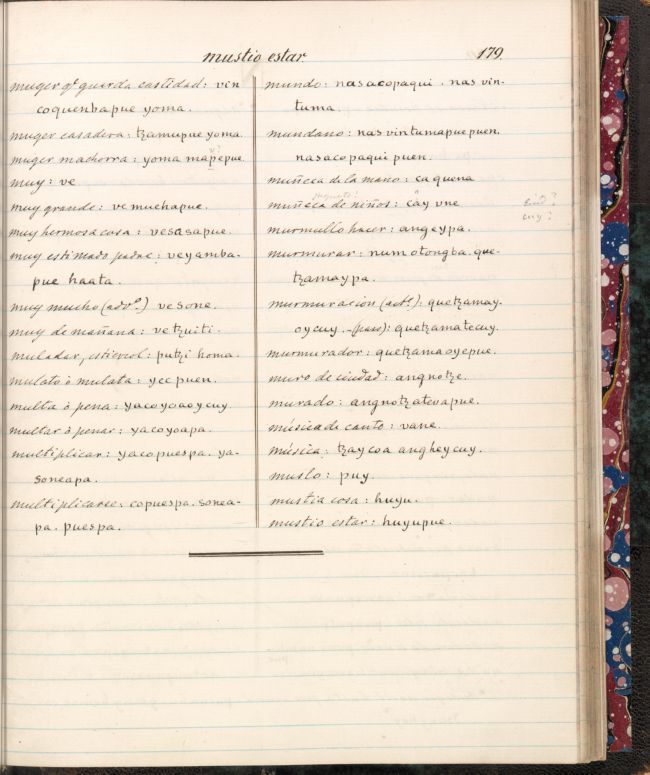 mustio estar
179
muger qᵉ guarda castidad: vin
coquenbapue yoma.
muger casadera: tzamupue yoma.
muger machorra: yoma mapepue.
muy: ve
muy grande: ve muchapue.
muy hermosa cosa: vesasapue.
muy estimado padre: veyamba-
pue haata.
muy mucho (advº.) ve sone.
muy de mañana: ve tzuiti.
muladar, estiercol: putzi homa.
mulato ò mulata: yec puen.
multa ò pena: yacoyoaoycuy.
multar ò penar: yacoyoapa.
multiplicar: yacopuespa. ya-
soneapa.
multiplicarse: copuespa. sonea-
pa. puespa.
mundo: nasacopaqui. nas vin-
tuma.
mundano: nas vintumapue puen.
nasacopaqui puen.
muñeca de la mano: caquena
muñeca de niños: cäy vne
cuy?
murmullo hacer: angeypa.
murmurar: num otongba. que-
tzamaypa.
murmuracion (actª.): quetzamay-
oycuy. - (pass): quetzamatecuy.
murmurador: quetzamaoyepue.
muro de ciudad: angnotze.
murado: angnotzatevapue.
música de canto: vane.
música: tzaycoa angheycuy.
muslo: puy.
mustia cosa: huyu.
mustio estar: huyupue.